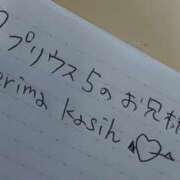 プリウス5のお兄様
erima kasih